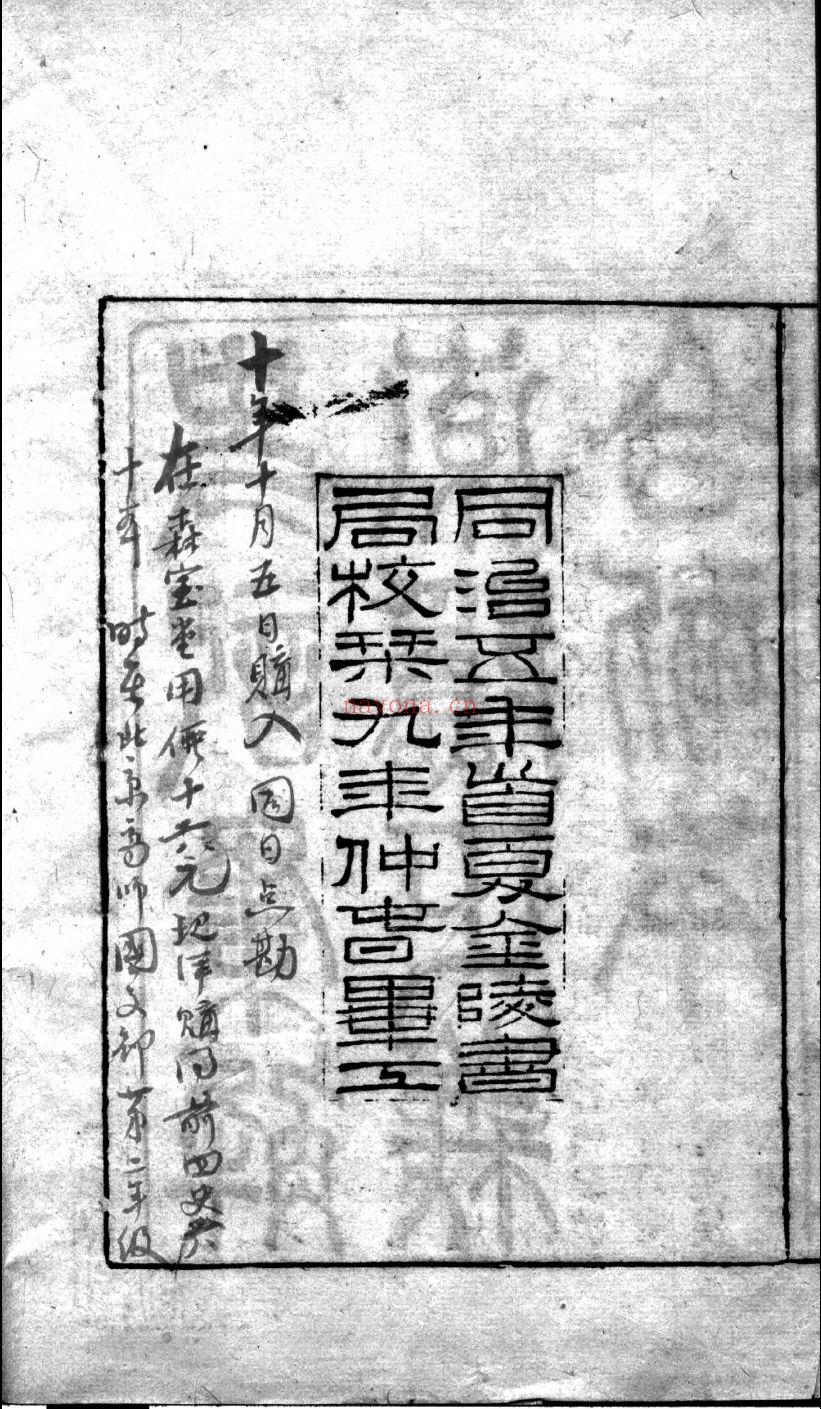 同治五年首夏金陵書
局校栞九年仲春畢工
十年十月五日購入 同日点勘
在森宝堂用價十六元 購得前四史
十年 時在北京高師國文部第二年级
nayona.cn